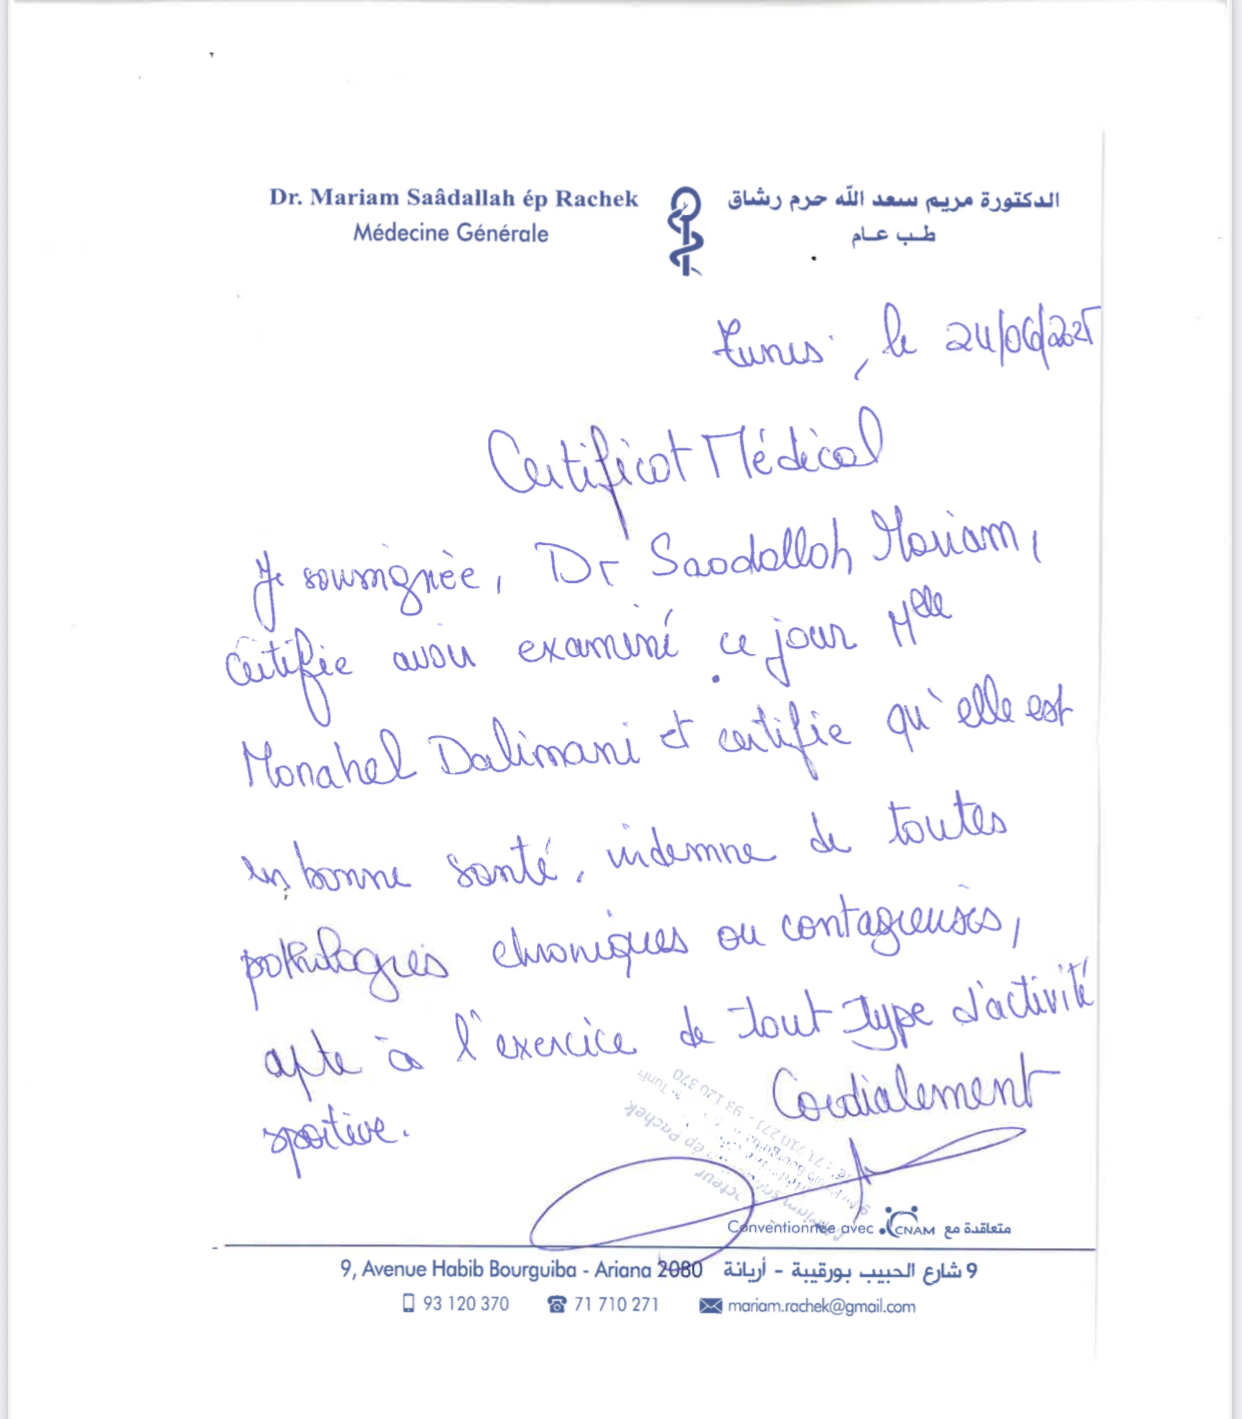 Dr. Mariam Saâdallah ép Rachek
Médecine Générale
الدكتورة مريم سعد الله حرم رشاق
طب عام
Tunis, le 24/06/2025
Certificat Médical
Je soussignée, Dr Saadallah Mariam,
certifie avoir examiné ce jour Mlle
Manahel Dalimani et certifie qu'elle est
en bonne santé, indemne de toutes
pathologies chroniques ou contagieuses,
apte à l'exercice de tout type d'activité
sportive.
Cordialement
71 710 271 - 93 120 370
ép Rachek
Conventionnée avec CNAM متعاقدة مع
9, Avenue Habib Bourguiba - Ariana 2080 9 شارع الحبيب بورقيبة - أريانة
93 120 370 71 710 271 mariam.rachek@gmail.com